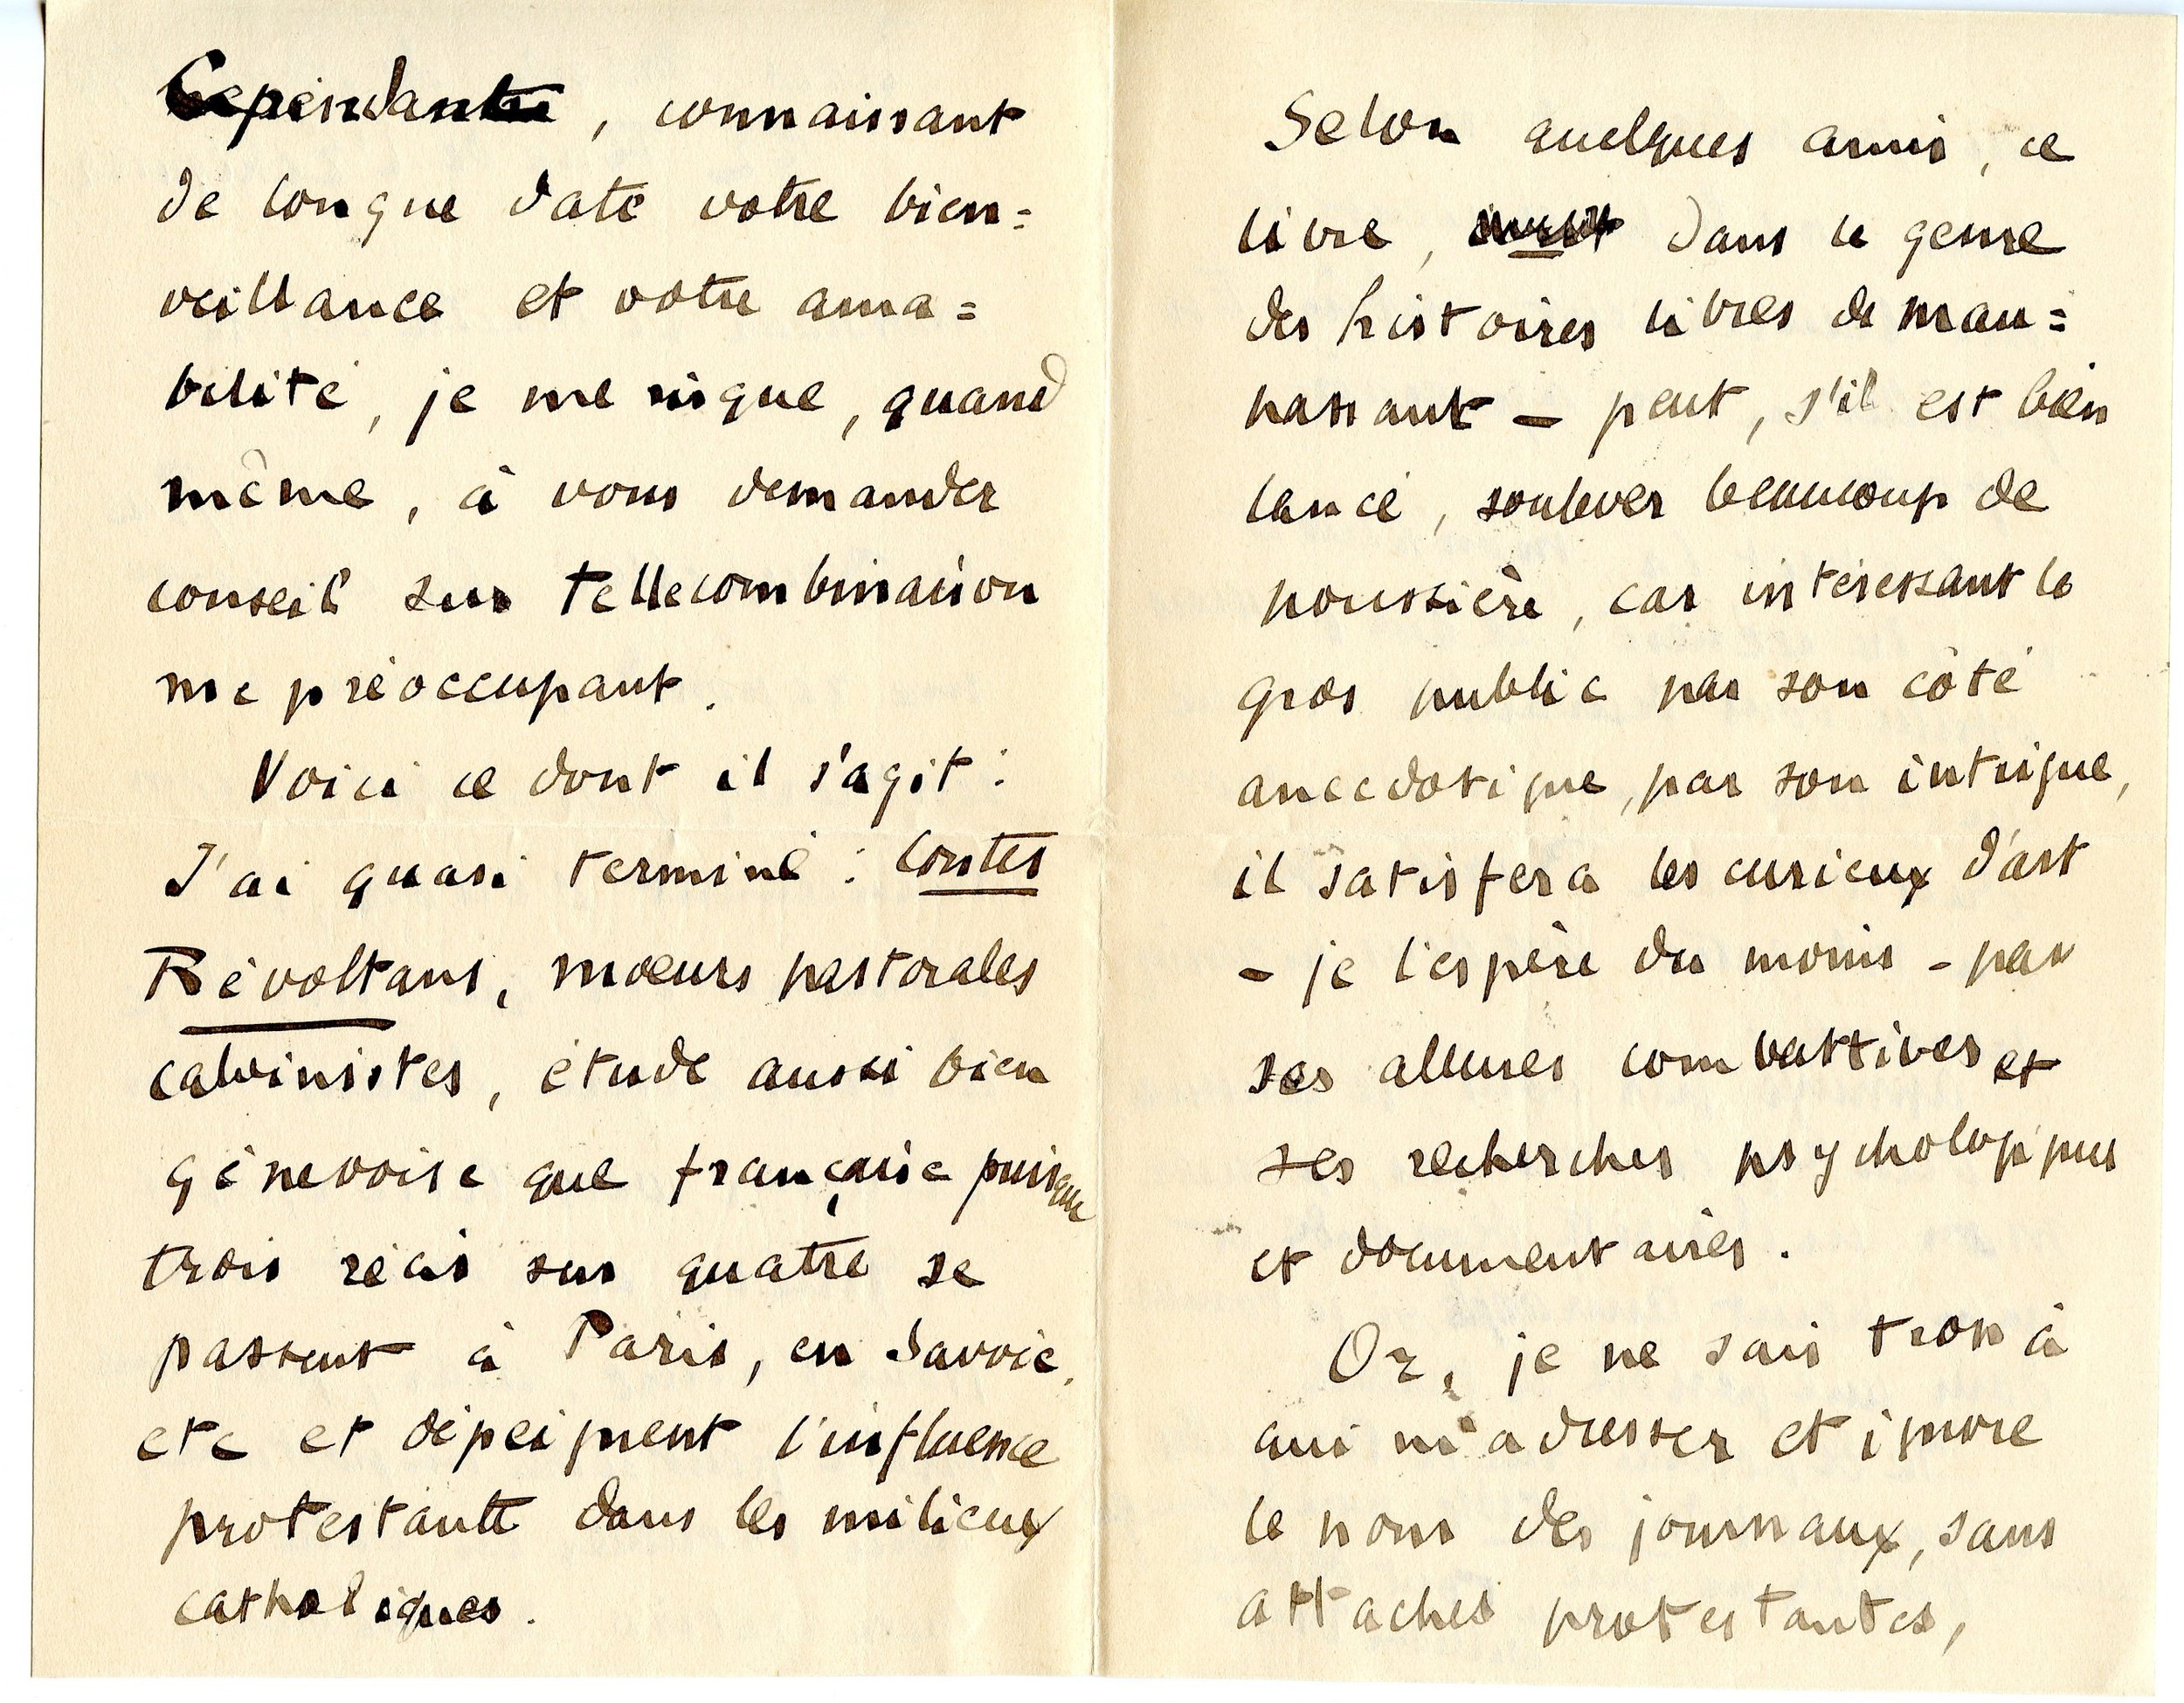 Cependant, connaissant
de longue date votre bien=
veillance et votre ama=
bilité, je me risque, quand
même, à vous demander
conseil sur telle combinaison
me préoccupant.
Voici ce dont il s'agit :
J'ai quasi terminé : Contes
Révoltans, mœurs pastorales
calvinistes, étude aussi bien
génevoise que française puisque
trois récis sur quatre se
passent à Paris, en Savoie,
etc et dépeignent l'influence
protestante dans les milieux
catholiques.
Selon quelques amis, ce
livre, dans le genre
des histoires libres de Mau=
passant – peut, s'il est bien
lancé, soulever beaucoup de
poussière, car intéressant le
gros public par son côté
anecdotique, par son intrigue,
il satisfera les curieux d'art
– je l'espère du moins – par
ses allures combattives et
ses recherches psychologiques
et documentaires.
Or, je ne sais trop à
qui m'adresser et ignore
le nom des journaux, sans
attaches protestantes,